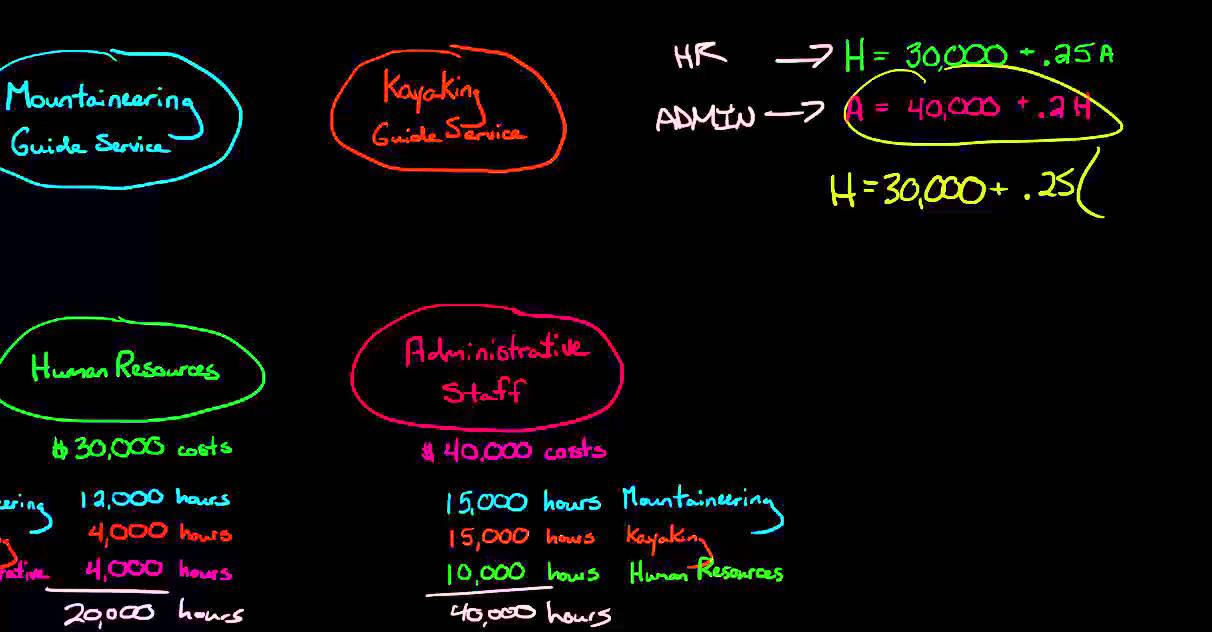 Mountaineering
Guide Service
Kayaking
Guide Service
HR → H = 30,000 + .25A
ADMIN → A = 40,000 + .2H
H = 30,000 + .25(
Human Resources
$30,000 costs
12,000 hours
4,000 hours
4,000 hours
20,000 hours
Administrative
Staff
$40,000 costs
15,000 hours Mountaineering
15,000 hours Kayaking
10,000 hours Human Resources
40,000 hours